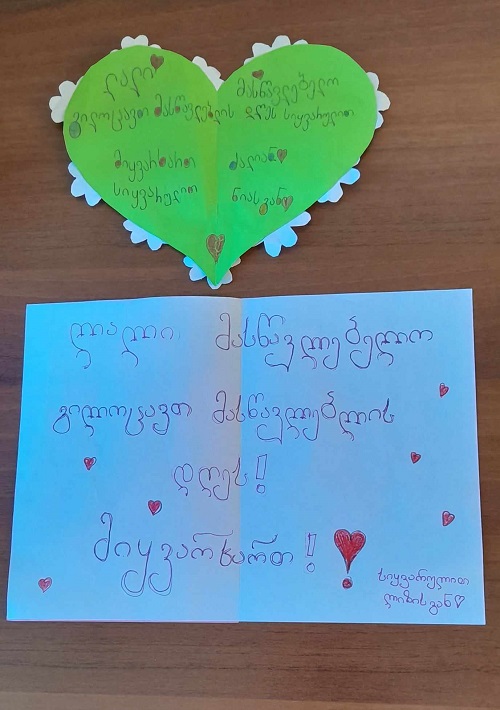 ლალი მასწავლებელო
გილოცავთ მასწავლებლის დღეს სიყვარულით
მიყვარხართ ძალიან
სიყვარულით ნიასგან
ლალი მასწავლებელო
გილოცავთ მასწავლებლის
დღეს!
მიყვარხართ!
სიყვარულით
ლიზისგან